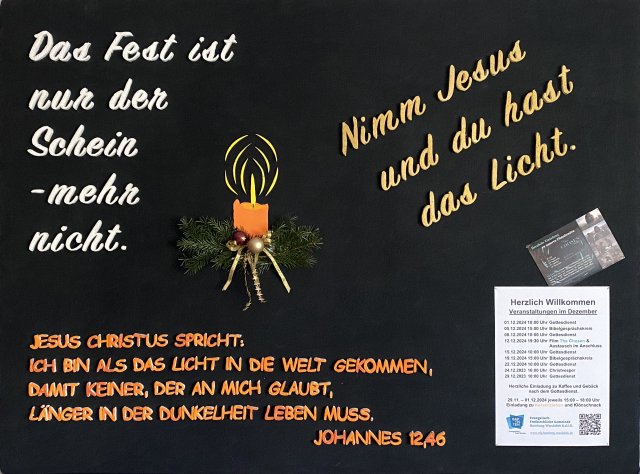 Das Fest ist
nur der
Schein
-mehr
nicht.
Nimm Jesus
und du hast
das Licht.
JESUS CHRISTUS SPRICHT:
ICH BIN ALS DAS LICHT IN DIE WELT GEKOMMEN,
DAMIT KEINER, DER AN MICH GLAUBT,
LÄNGER IN DER DUNKELHEIT LEBEN MUSS.
JOHANNES 12,46
Herzlich Willkommen
Veranstaltungen im Dezember
01.12.2024 10:00 Uhr Gottesdienst
05.12.2024 19:30 Uhr Bibelgesprächskreis
08.12.2024 10:00 Uhr Gottesdienst
12.12.2024 19:30 Uhr Film The Chosen &
Austausch im Anschluss
15.12.2024 10:00 Uhr Gottesdienst
19.12.2024 19:30 Uhr Bibelgesprächskreis
22.12.2024 10:00 Uhr Gottesdienst
24.12.2023 16:00 Uhr Christvesper
29.12.2023 10:00 Uhr Gottesdienst
Herzliche Einladung zu Kaffee und Gebäck
nach dem Gottesdienst.
29.11. – 01.12.2024 jeweils 15:00 – 18:00 Uhr
Einladung zu und Klönschnack
Evangelisch-
Freikirchliche Gemeinde